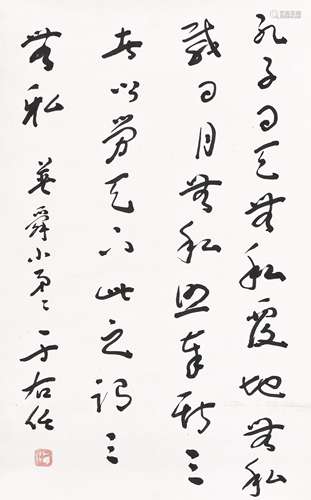 孔子曰天無私覆地無私
載日月無私照奉斯三
者以勞天下此之謂三
無私 英舜小弟 于右任